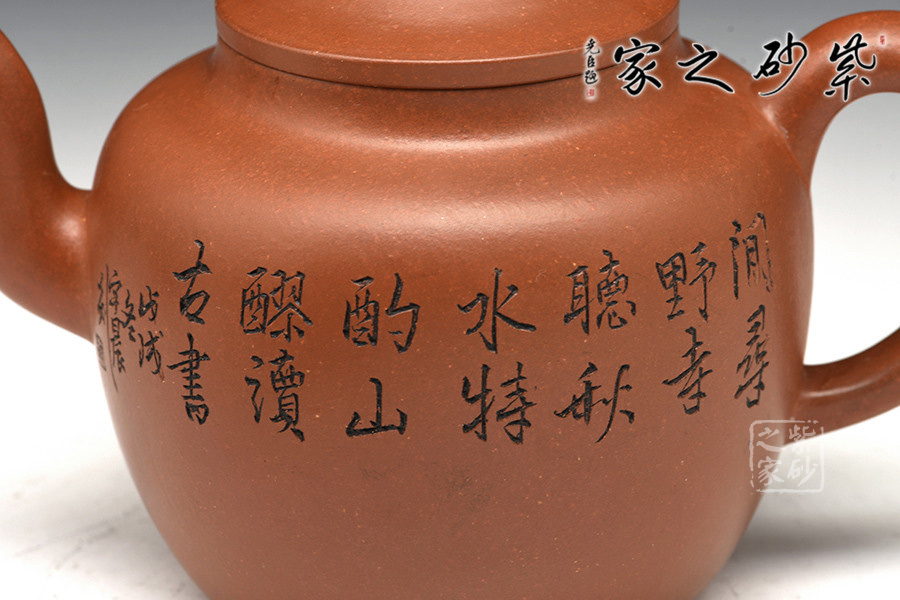 紫砂之家
尧臣題
閒尋
野寺
聽秋
水特
酌山
醪讀
古書
戊戌
冬
紫砂之家